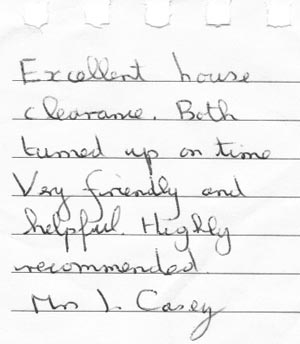 Excellent house
clearance. Both
turned up on time
Very friendly and
helpful. Highly
recommended.
Mrs J. Casey